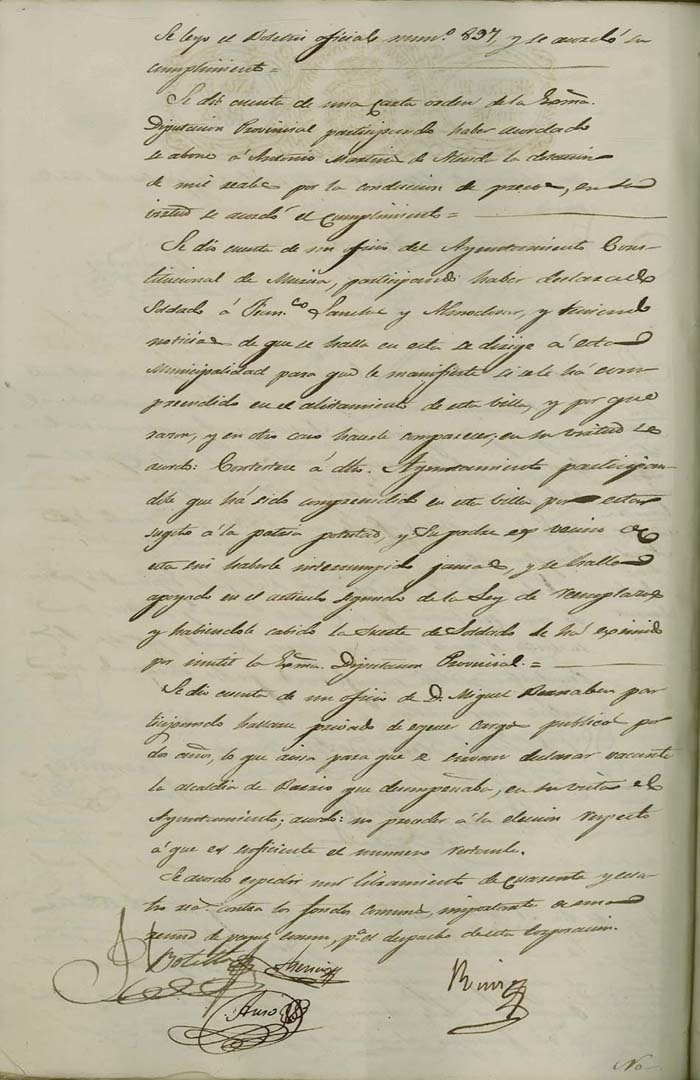 Se leyo el Boletin oficial num.º 897 y se acordó su
cumplimiento =
Se dió cuenta de una Carta orden de la Exma.
Diputacion Provincial participando haber acordado
se abone á Antonio Martinez de la
de mil reales por la conduccion de presos, en su
virtud se acordó el cumplimiento =
Se dio cuenta de un oficio del Ayuntamiento Cons-
titucional de Murcia, participando haber declarado
Soldado á Fran.co Sanchez y Almodovar, y teniendo
noticias de que se halla en esta se dirije á esta
Municipalidad para que le manifieste si se le há com-
prendido en el alistamiento de esta villa, y por que
razon, y en otro caso hacerle comparecer; en su virtud se
acordo: Contestar á dho. Ayuntamiento participan-
dole que há sido comprendido en esta villa por estar
sugeto á la patria potestad, y su padre es vecino de
esta sin haberlo interrumpido jamas, y se halla
apoyado en el articulo segundo de la Ley de reemplazos
y habiendole cabido la suerte de Soldado le há eximido
por inutil la Exma. Diputacion Provincial. =
Se dio cuenta de un oficio de D. Miguel Bernabeu par
ticipando hallarse privado de egercer cargo publico por
dos años, lo que avisa para que se sirvan declarar vacante
la alcaldia de Barrio que desempeñaba, en su vista el
Ayuntamiento; acordo: no proceder á la eleccion respecto
á que es suficiente el numero restante.
Se acordo espedir un libramiento de cuarenta y cua
tro rea.s contra los fondos comunes, importante de una
resma de papel comun, p.ª el despacho de esta Corporacion.
Botella
Auso
Ruiz
No